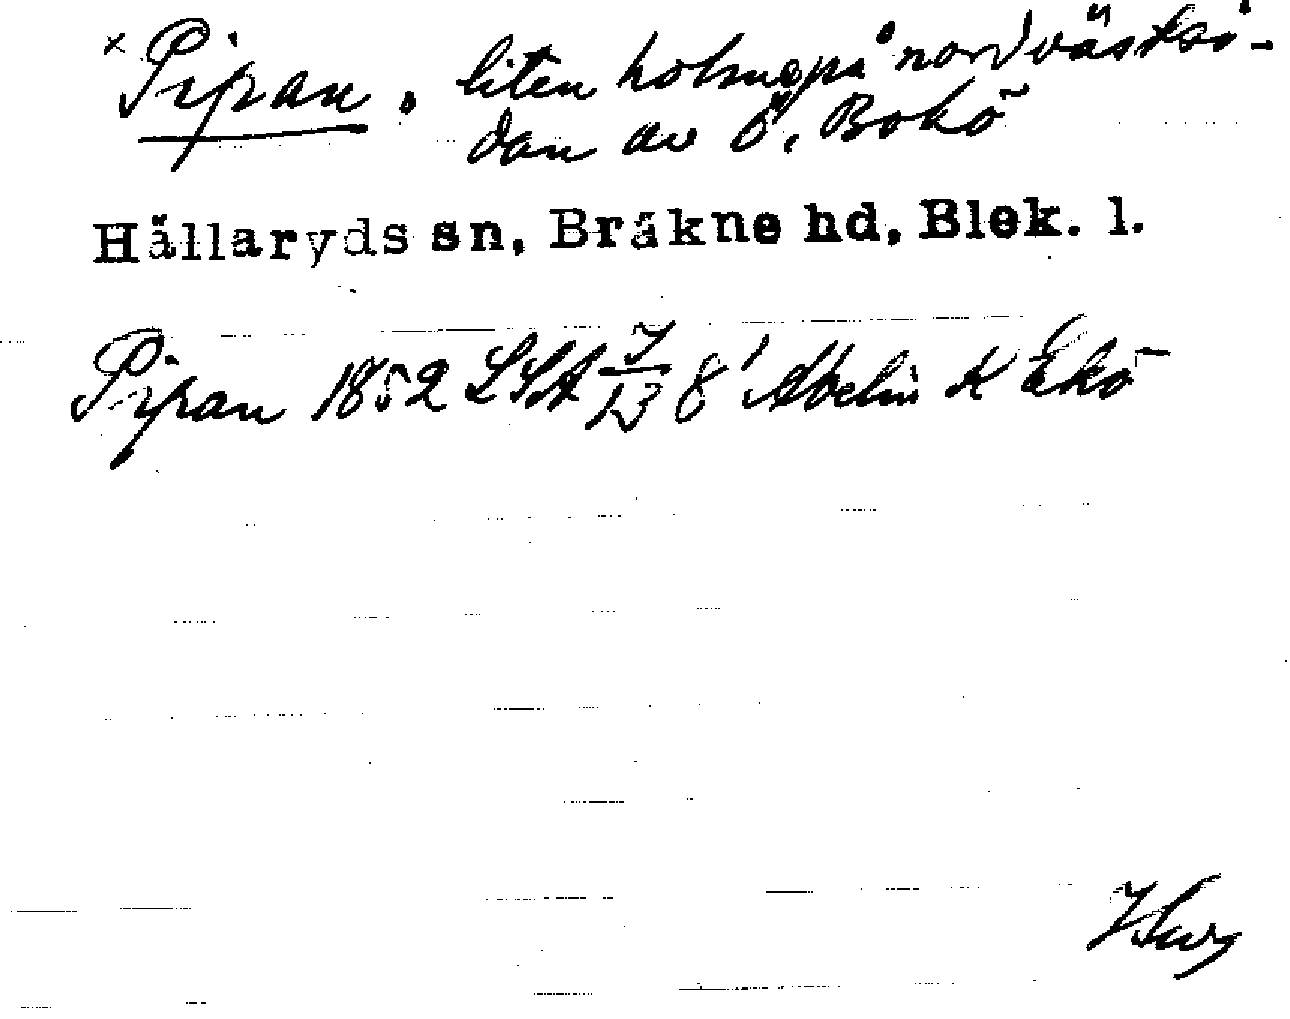 × Pipan. liten holme på nordvästsi-
dan av Ö. Bokö
Hällaryds sn, Bräkne hd, Blek. l.
Pipan 1852 LSA 7/13 8' Abelin K Ekö